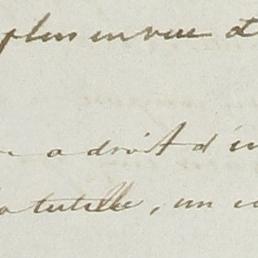 plus en vue d
a droit d'in
la tutelle, un co